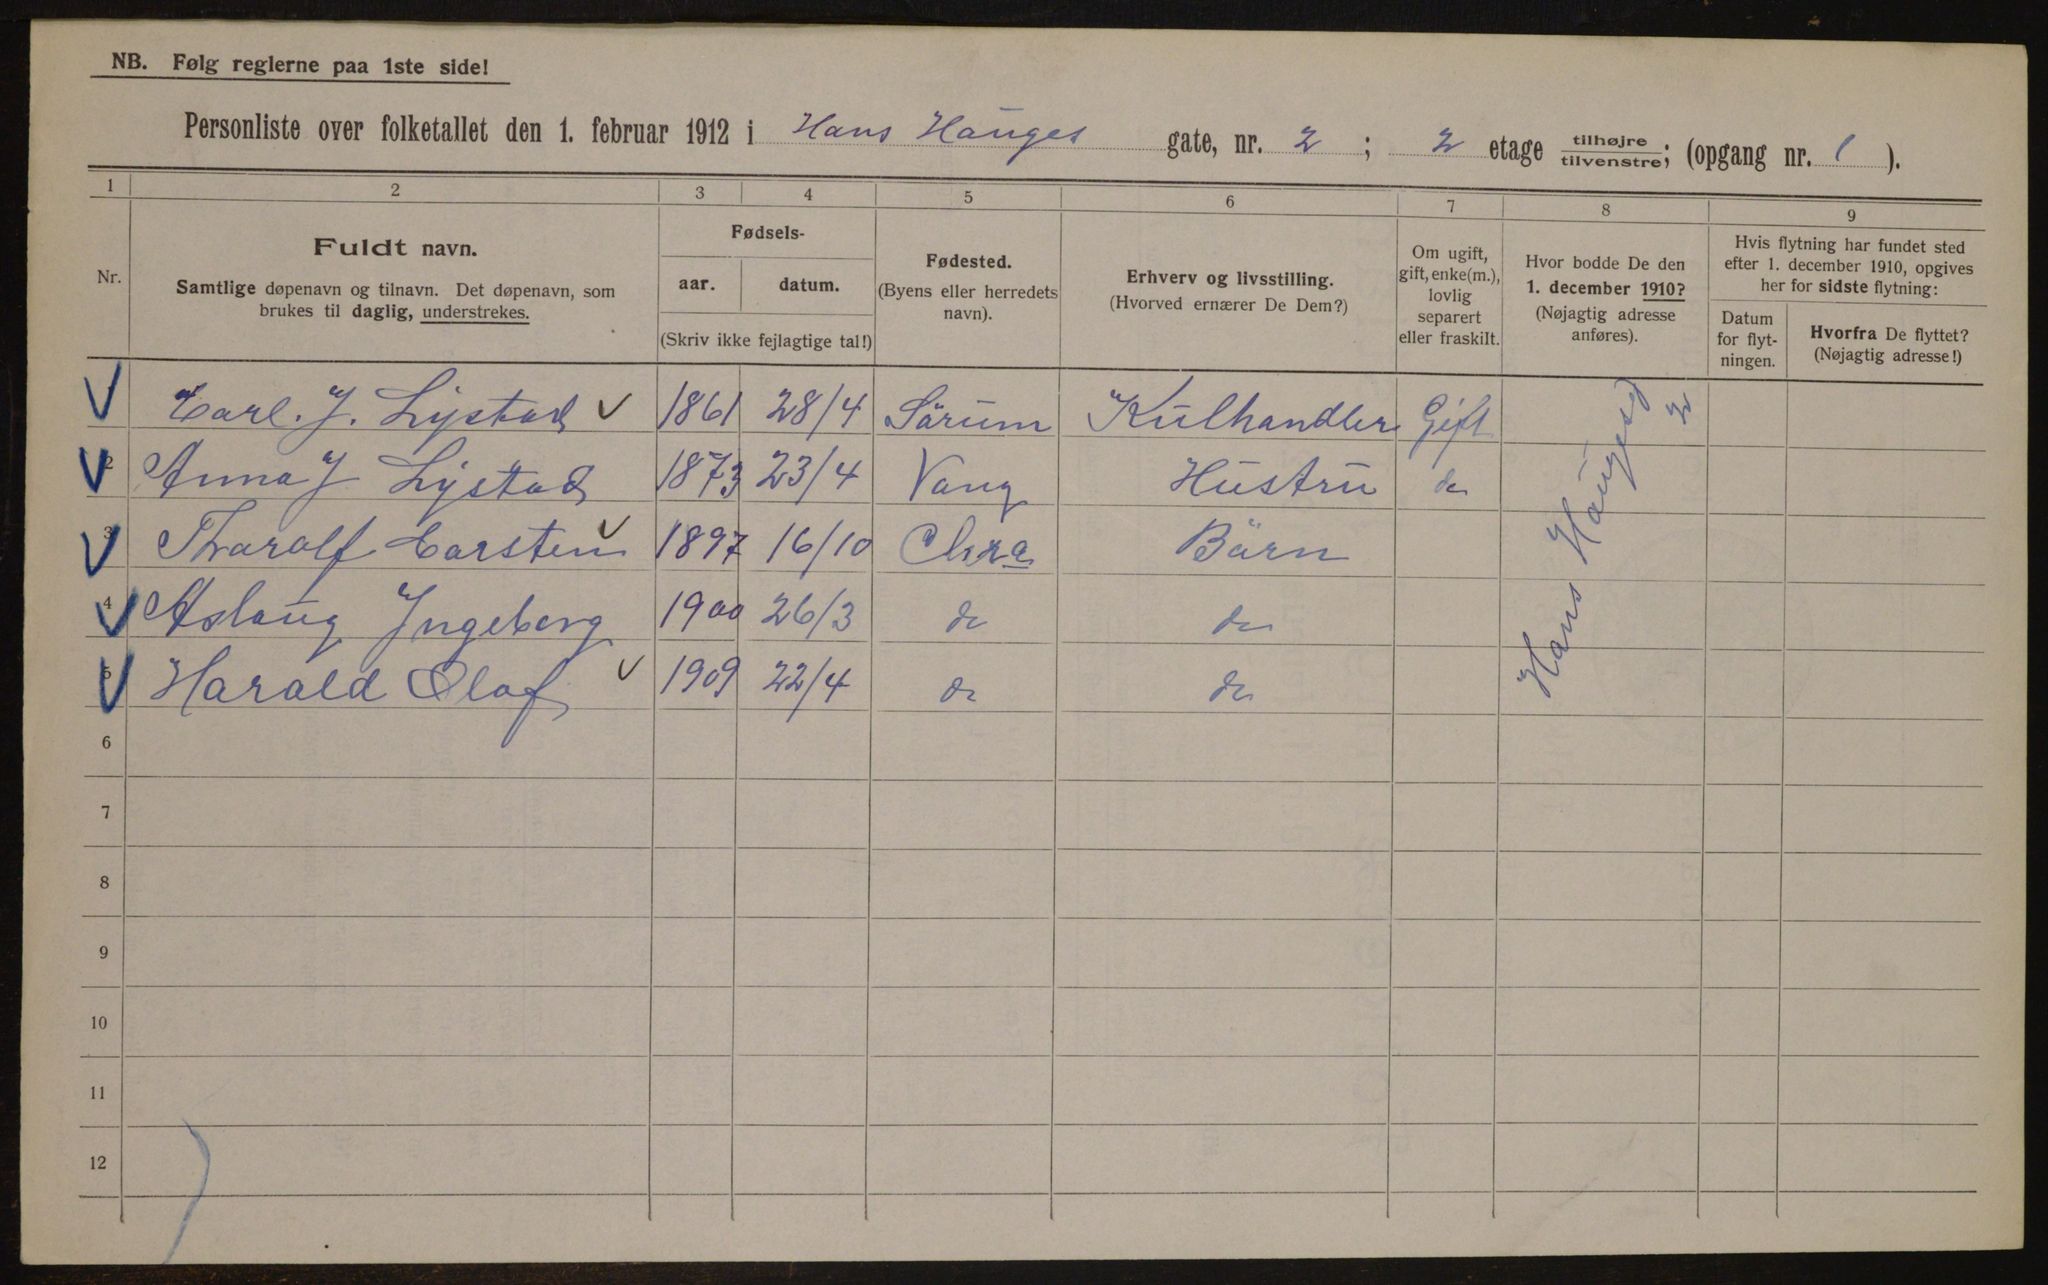 NB. Følg reglerne paa 1ste side!
Personliste over folketallet den 1. februar 1912 i Hans Hauges gate, nr. 2 ; 2 etage tilhøjre / tilvenstre; (opgang nr. 1 ).
1 2 3 4 5 6 7 8 9
Nr.
Fuldt navn.
Samtlige døpenavn og tilnavn. Det døpenavn, som
brukes til daglig, understrekes.
Fødsels-
aar. datum.
(Skriv ikke fejlagtige tal!)
Fødested.
(Byens eller herredets
navn).
Erhverv og livsstilling.
(Hvorved ernærer De Dem?)
Om ugift,
gift, enke(m.),
lovlig
separert
eller fraskilt.
Hvor bodde De den
1. december 1910?
(Nøjagtig adresse
anføres).
Hvis flytning har fundet sted
efter 1. december 1910, opgives
her for sidste flytning:
Datum
for flyt-
ningen.
Hvorfra De flyttet?
(Nøjagtig adresse!)
Carl. J. Lystad 1861 28/4 Sörum Kulhandler Gift
2 Anna J Lystad 1873 23/4 Vang Hustru do
3 Tharalf Carsten 1897 16/10 Chra Börn
4 Aslaug Ingeborg 1900 26/3 do do
5 Harald Olaf 1909 22/4 do do
Hans Haugesg
2
6
7
8
9
10
11
12